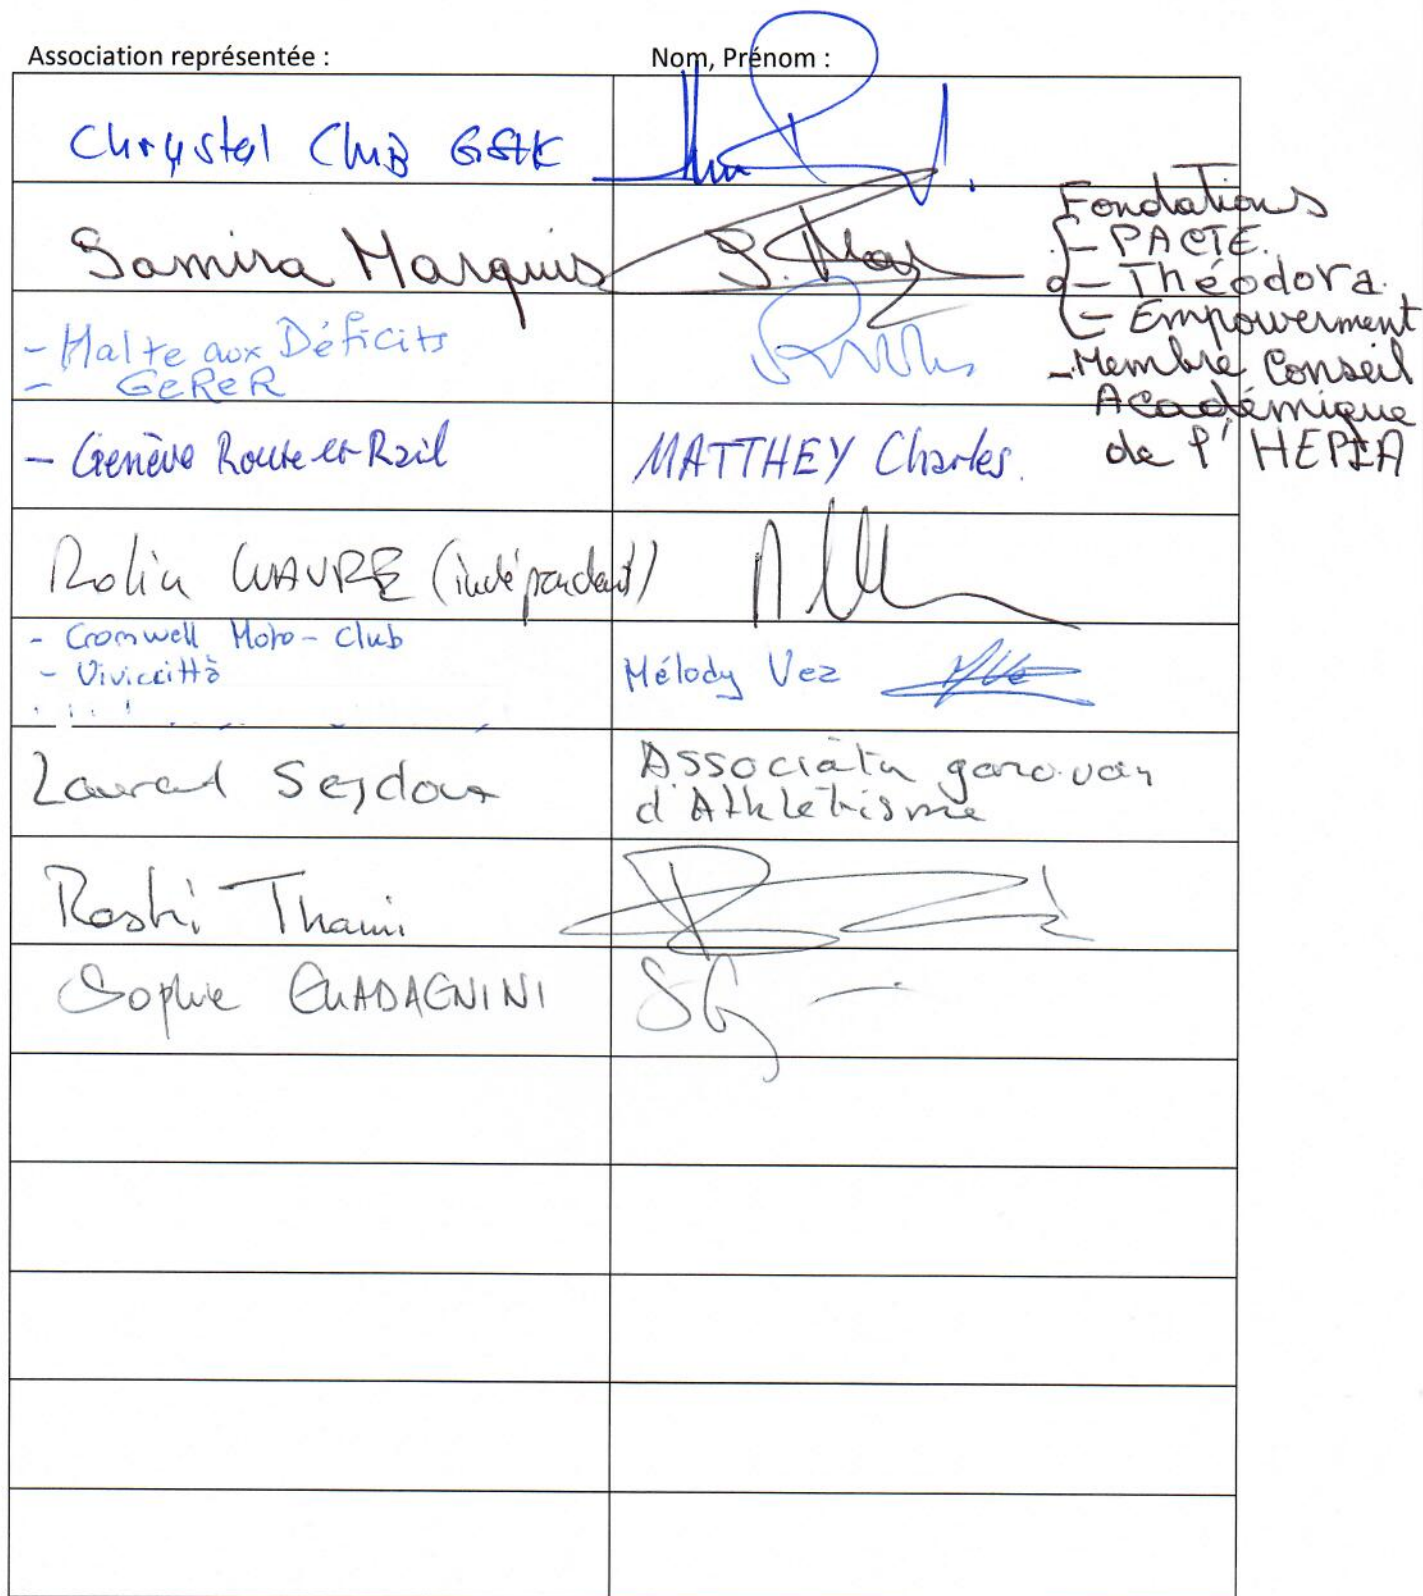 Association représentée :
Nom, Prénom :
Chrystal Club
Samira Marquis
Fondations
- PACTE.
- Théodora.
- Empowerment
- Membre Conseil
Académique
de l'HEPIA
- Halte aux Déficits
- GeReR
- Genève Route et Rail
MATTHEY Charles.
Rolin WAVRE (indépendant)
- Cromwell Moto-Club
- Vivicittà
Mélody Vez
Laurent Seydoux
Association genevoise
d'Athlétisme
Sophie GUADAGNINI